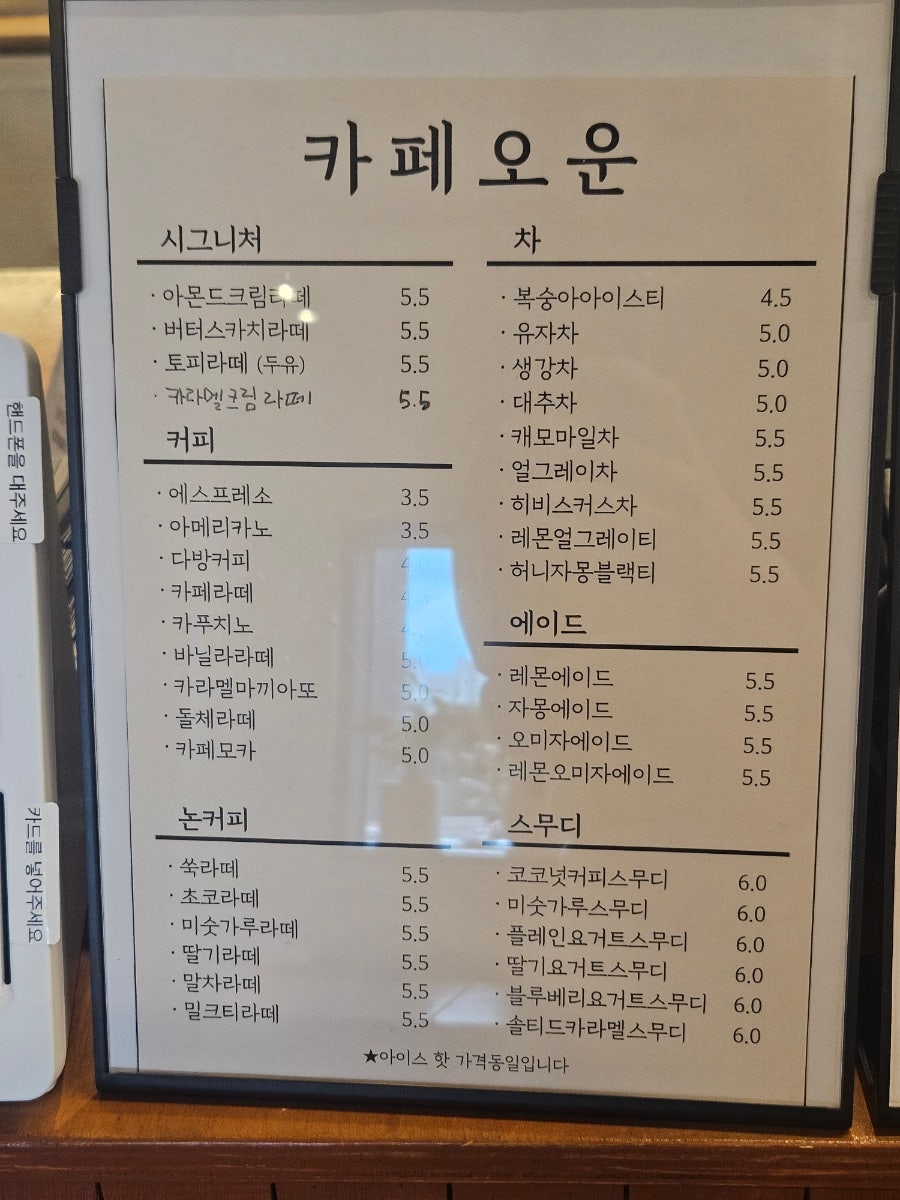 카페오운
시그니처
· 아몬드크림라떼 5.5
· 버터스카치라떼 5.5
· 토피라떼 (두유) 5.5
· 카라멜크림라떼 5.5
커피
· 에스프레소 3.5
· 아메리카노 3.5
· 다방커피 4.0
· 카페라떼 4.5
· 카푸치노
· 바닐라라떼 5.0
· 카라멜마끼아또 5.0
· 돌체라떼 5.0
· 카페모카 5.0
논커피
· 쑥라떼 5.5
· 초코라떼 5.5
· 미숫가루라떼 5.5
· 딸기라떼 5.5
· 말차라떼 5.5
· 밀크티라떼 5.5
차
· 복숭아아이스티 4.5
· 유자차 5.0
· 생강차 5.0
· 대추차 5.0
· 캐모마일차 5.5
· 얼그레이차 5.5
· 히비스커스차 5.5
· 레몬얼그레이티 5.5
· 허니자몽블랙티 5.5
에이드
· 레몬에이드 5.5
· 자몽에이드 5.5
· 오미자에이드 5.5
· 레몬오미자에이드 5.5
스무디
· 코코넛커피스무디 6.0
· 미숫가루스무디 6.0
· 플레인요거트스무디 6.0
· 딸기요거트스무디 6.0
· 블루베리요거트스무디 6.0
· 솔티드카라멜스무디 6.0
★아이스 핫 가격동일입니다
핸드폰을 대주세요
카드를 넣어주세요